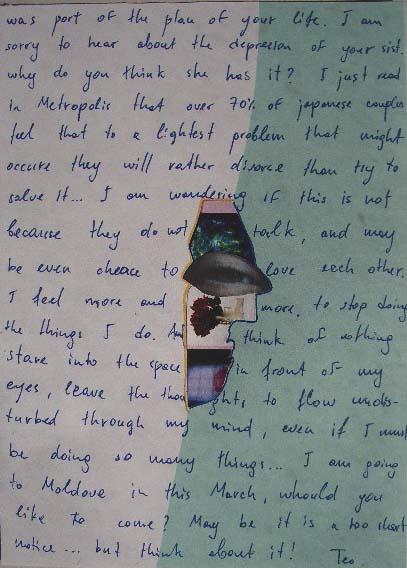 was part of the plan of your life. I am
sorry to hear about the depresion of your sist.
why do you think she has it? I just read
in Metropolis that over 70% of japanese couples
feel that to a lightest problem that might
occure they will rather divorce than try to
solve it... I am wondering if this is not
because they do not talk, and may
be even cheace to love each other.
I feel more and more, to stop doing
the things I do. And think of nothing
stare into the space in front of my
eyes, leave the thoughts to flow undis-
turbed through my mind, even if I must
be doing so many things... I am going
to Moldova in this March, whould you
like to come? May be it is a too short
notice... but think about it! Teo.